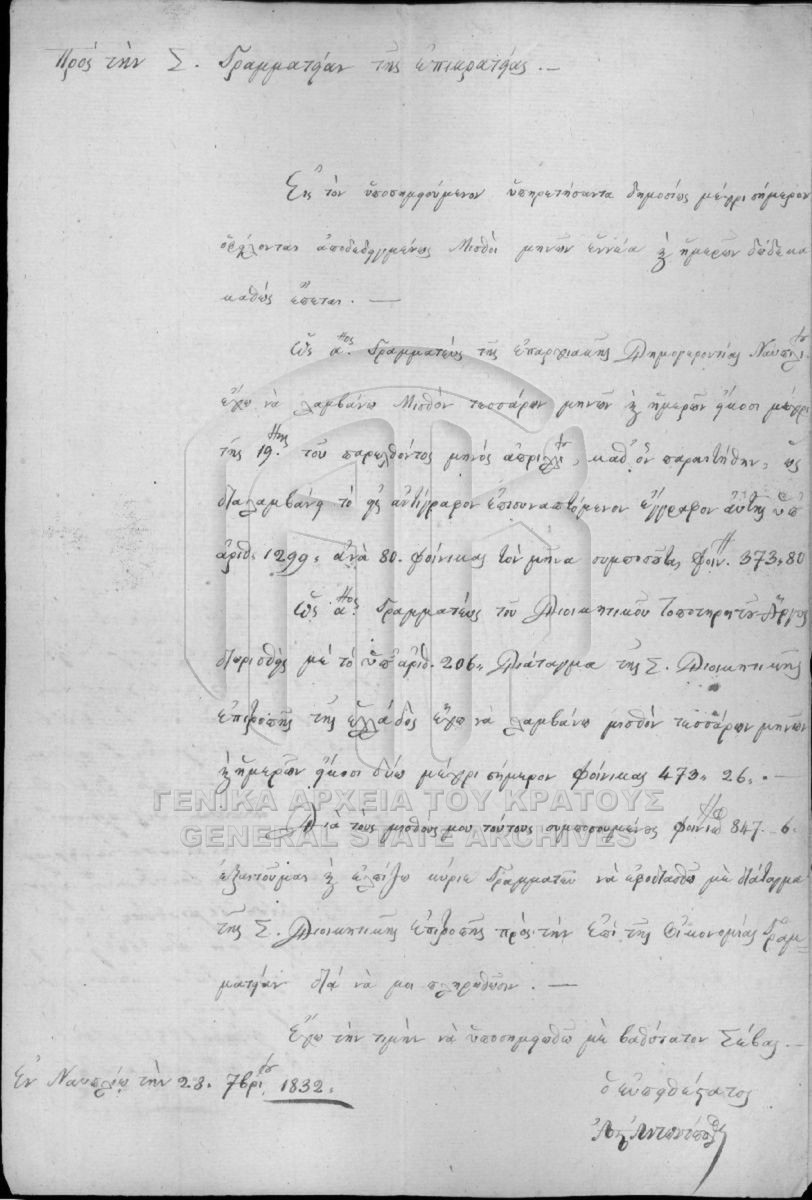 Πρὸς τὴν Σ. Γραμματείαν τῆς ἐπικρατείας. —
Εἰς τὸν ὑποσημειούμενον ὑπηρετήσαντα δημοσίως μέχρι σήμερον
ὀφείλονται ἀποδεδειγμένως Μισθοὶ μηνῶν ἐννέα κ ἡμερῶν δώδεκα
καθὼς ἕπεται. —
Ὡς α:ος Γραμματεὺς τῆς ἐπαρχιακῆς Δημογεροντίας Ναυπλίου
ἔχω νὰ λαμβάνω Μισθὸν τεσσάρων μηνῶν κ ἡμερῶν εἴκοσι μέχρι
τῆς 19:ης τοῦ παρελθόντος μηνὸς ἀπριλλίου, καθ' ἣν παραιτήθην, ὡς
διαλαμβάνει τὸ εἰς ἀντίγραφον ἐπισυναπτόμενον ἔγγραφον αὐτῆς ὑπ'
ἀριθ. 1299, ἀνὰ 80. φοίνικας τὸν μῆνα συμποσοῦται φοίν. 373,, 80
Ὡς α:ος Γραμματεὺς τοῦ Διοικητικοῦ Τοποτηρητοῦ Ἄργους
διορισθεὶς μὲ τὸ ὑπ' ἀριθ. 206,, Διάταγμα τῆς Σ. Διοικητικῆς
ἐπιτροπῆς τῆς ἑλλάδος ἔχω νὰ λαμβάνω μισθὸν τεσσάρων μηνῶν
κ ἡμερῶν εἴκοσι δύω μέχρι σήμερον φοίνικας 473,, 26. —
Διὰ τοὺς μισθούς μου τούτους συμποσουμένους φοίν. 847,, 6.
ἐξαιτοῦμαι κ ἐλπίζω κύριε Γραμματεῦ νὰ ἐφοδιασθῶ μὲ διάταγμα
τῆς Σ. Διοικητικῆς Ἐπιτροπῆς πρὸς τὴν Ἐπὶ τῆς Οἰκονομίας Γραμ-
ματείαν διὰ νὰ μοι πληρωθῶσιν. —
Ἔχω τὴν τιμὴν νὰ ὑποσημειωθῶ μὲ βαθύτατον Σέβας. —
Ἐν Ναυπλίῳ τὴν 28. 7βρίου 1832.
ὁ εὐπειθέστατος
ΓΕΝΙΚΑ ΑΡΧΕΙΑ ΤΟΥ ΚΡΑΤΟΥΣ
GENERAL STATE ARCHIVES